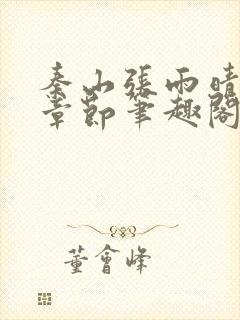 秦山張雨晴
章節筆趣閣
董會峰